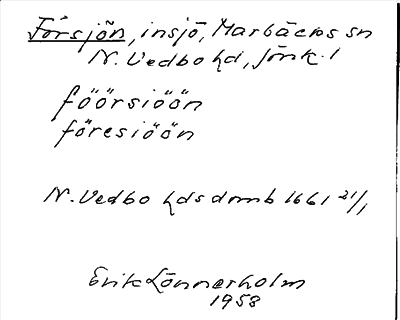 Försjön, insjö, Marbäcks sn
N. Vedbo hd, Jönk. l
föörsiöön
föresiöön
N. Vedbo hds domb 1661 21/1
Erik Lönnerholm
1958